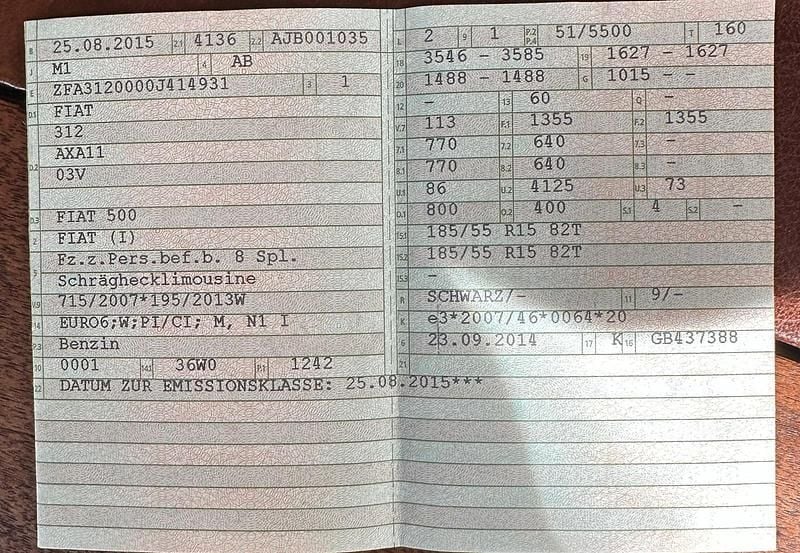 B 25.08.2015 2.1 4136 2.2 AJB001035
J M1 4 AB
E ZFA3120000J414931 3 1
D.1 FIAT
312
AXA11
D.2 03V
D.3 FIAT 500
2 FIAT (I)
Fz.z.Pers.bef.b. 8 Spl.
5 Schräghecklimousine
V.9 715/2007*195/2013W
14 EURO6;W;PI/CI; M, N1 I
P.3 Benzin
10 0001 14.1 36W0 P.1 1242
22 DATUM ZUR EMISSIONSKLASSE: 25.08.2015***
L 2 9 1 P.2 P.4 51/5500 T 160
18 3546 - 3585 19 1627 - 1627
20 1488 - 1488 G 1015 - -
12 - 13 60 Q -
V.7 113 F.1 1355 F.2 1355
7.1 770 7.2 640 7.3 -
8.1 770 8.2 640 8.3 -
U.1 86 U.2 4125 U.3 73
O.1 800 O.2 400 S.1 4 S.2 -
15.1 185/55 R15 82T
15.2 185/55 R15 82T
15.3 -
R SCHWARZ/- 11 9/-
K e3*2007/46*0064*20
6 23.09.2014 17 K 16 GB437388
21